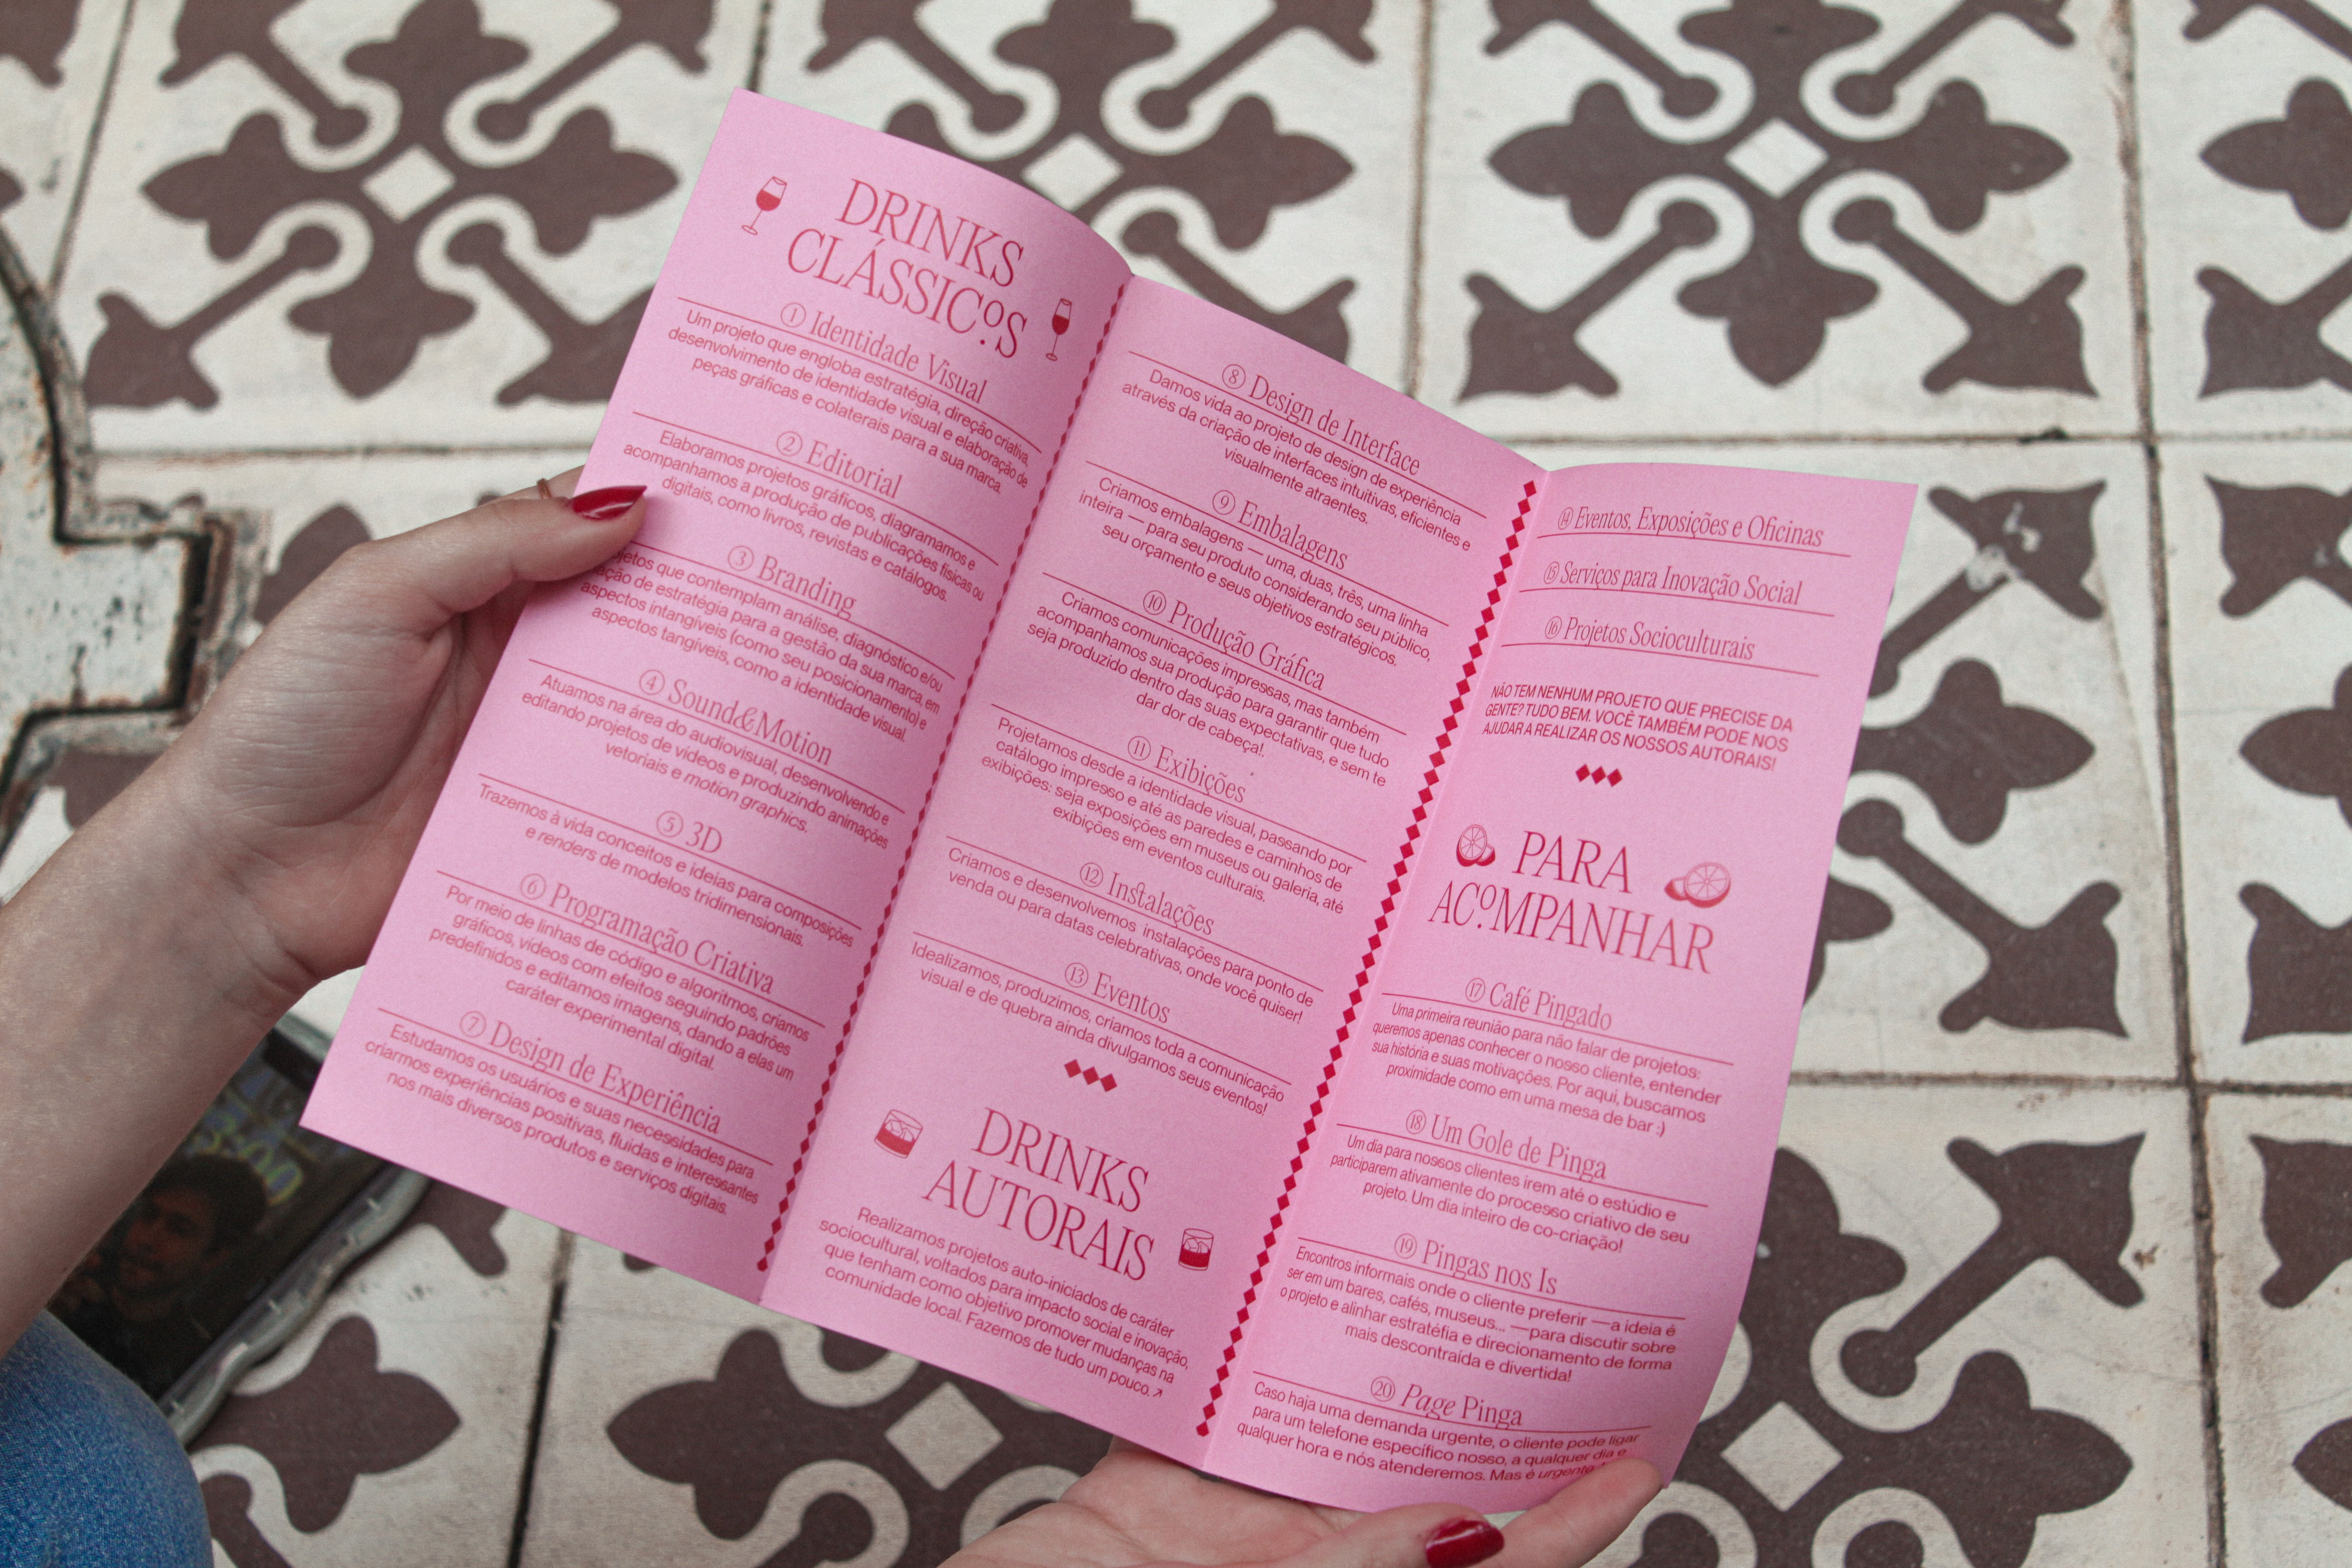 DRINKS
CLÁSSICOS
1 Identidade Visual
Um projeto que engloba estratégia, direção criativa,
desenvolvimento de identidade visual e elaboração de
peças gráficas e colaterais para a sua marca.
2 Editorial
Elaboramos projetos gráficos, diagramamos e
acompanhamos a produção de publicações físicas ou
digitais, como livros, revistas e catálogos.
3 Branding
que contemplam análise, diagnóstico e/ou
de estratégia para a gestão da sua marca, em
aspectos intangíveis (como seu posicionamento) e
aspectos tangíveis, como a identidade visual.
4 Sound&Motion
Atuamos na área do audiovisual, desenvolvendo e
editando projetos de vídeos e produzindo animações
vetoriais e motion graphics.
5 3D
Trazemos à vida conceitos e ideias para composições
e renders de modelos tridimensionais.
6 Programação Criativa
Por meio de linhas de código e algoritmos, criamos
gráficos, vídeos com efeitos seguindo padrões
predefinidos e editamos imagens, dando a elas um
caráter experimental digital.
7 Design de Experiência
Estudamos os usuários e suas necessidades para
criarmos experiências positivas, fluidas e interessantes
nos mais diversos produtos e serviços digitais.
8 Design de Interface
Damos vida ao projeto de design de experiência
através da criação de interfaces intuitivas, eficientes e
visualmente atraentes.
9 Embalagens
Criamos embalagens — uma, duas, três, uma linha
inteira — para seu produto considerando seu público,
seu orçamento e seus objetivos estratégicos.
10 Produção Gráfica
Criamos comunicações impressas, mas também
acompanhamos sua produção para garantir que tudo
seja produzido dentro das suas expectativas, e sem te
dar dor de cabeça!.
11 Exibições
Projetamos desde a identidade visual, passando por
catálogo impresso e até as paredes e caminhos de
exibições: seja exposições em museus ou galeria, até
exibições em eventos culturais.
12 Instalações
Criamos e desenvolvemos instalações para ponto de
venda ou para datas celebrativas, onde você quiser!
13 Eventos
Idealizamos, produzimos, criamos toda a comunicação
visual e de quebra ainda divulgamos seus eventos!
DRINKS
AUTORAIS
Realizamos projetos auto-iniciados de caráter
sociocultural, voltados para impacto social e inovação,
que tenham como objetivo promover mudanças na
comunidade local. Fazemos de tudo um pouco.↗
14 Eventos, Exposições e Oficinas
15 Serviços para Inovação Social
16 Projetos Socioculturais
NÃO TEM NENHUM PROJETO QUE PRECISE DA
GENTE? TUDO BEM. VOCÊ TAMBÉM PODE NOS
AJUDAR A REALIZAR OS NOSSOS AUTORAIS!
PARA
ACOMPANHAR
17 Café Pingado
Uma primeira reunião para não falar de projetos:
queremos apenas conhecer o nosso cliente, entender
sua história e suas motivações. Por aqui, buscamos
proximidade como em uma mesa de bar :)
18 Um Gole de Pinga
Um dia para nossos clientes irem até o estúdio e
participarem ativamente do processo criativo de seu
projeto. Um dia inteiro de co-criação!
19 Pingas nos Is
Encontros informais onde o cliente preferir —a ideia é
ser em um bares, cafés, museus... —para discutir sobre
o projeto e alinhar estratéfia e direcionamento de forma
mais descontraída e divertida!
20 Page Pinga
Caso haja uma demanda urgente, o cliente pode ligar
para um telefone específico nosso, a qualquer dia e
qualquer hora e nós atenderemos. Mas é urgente